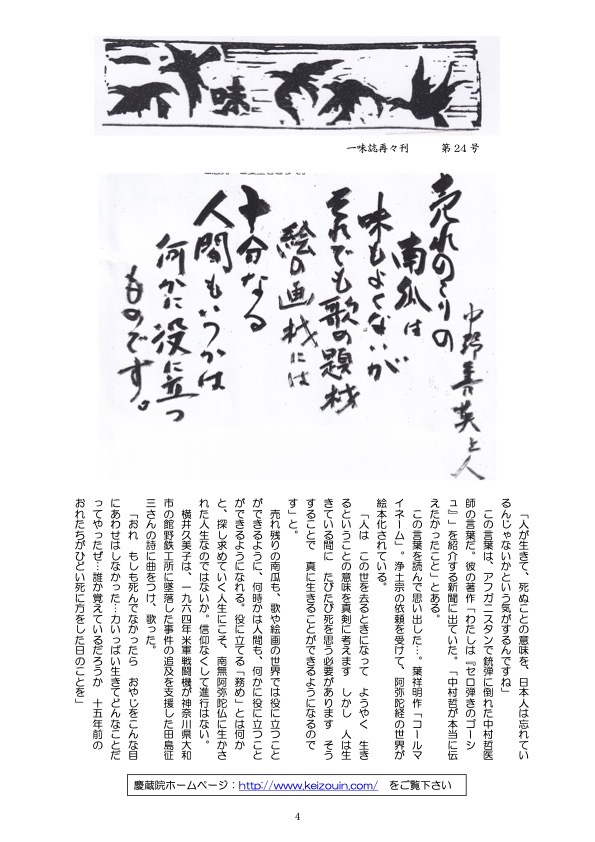 一味
一味誌再々刊　　第24号
売れのこりの
南瓜は
味もよくないが
それでも歌の題材
絵の画材には
十分なる
人間もいつかは
何かに役に立つ
ものです。
中野善英上人
「人が生きて、死ぬことの意味を、日本人は忘れてい
るんじゃないかという気がするんですね」
この言葉は、アフガニスタンで銃弾に倒れた中村哲医
師の言葉だ。彼の著作「わたしは『セロ弾きのゴーシ
ュ』」を紹介する新聞に出ていた。「中村哲が本当に伝
えたかったこと」とある。
この言葉を読んで思い出した…。葉祥明作「コールマ
イネーム」。浄土宗の依頼を受けて、阿弥陀経の世界が
絵本化されている。
「人は　この世を去るときになって　ようやく　生き
るということの意味を真剣に考えます　しかし　人は生
きている間に　たびたび死を思う必要があります　そう
することで　真に生きることができるようになるので
す」と。
売れ残りの南瓜も、歌や絵画の世界では役に立つこと
ができるように、何時かは人間も、何かに役に立つこと
ができるようになれる。役に立てる「務め」とは何か
と、探し求めていく人生にこそ、南無阿弥陀仏に生かさ
れた人生なのではないか。信仰なくして進行はない。
横井久美子は、一九六四年米軍戦闘機が神奈川県大和
市の館野鉄工所に墜落した事件の追及を支援した田島征
三さんの詩に曲をつけ、歌った。
「おれ　もしも死んでなかったら　おやじをこんな目
にあわせはしなかった…力いっぱい生きてどんなことだ
ってやったぜ…誰か覚えているだろうか　十五年前の
おれたちがひどい死に方をした日のことを」
慶蔵院ホームページ：http://www.keizouin.com/　をご覧下さい
4